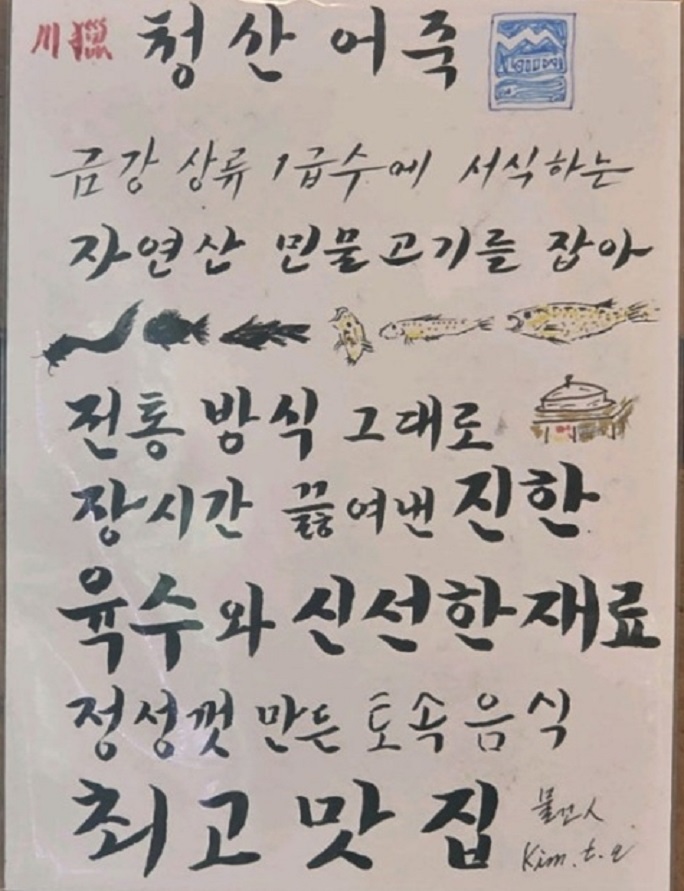 川獵 청산어죽
금강 상류 1급수에 서식하는
자연산 민물고기를 잡아
전통 방식 그대로
장시간 끓여낸 진한
육수와 신선한 재료
정성껏 만든 토속음식
최고 맛집
Kim.t.